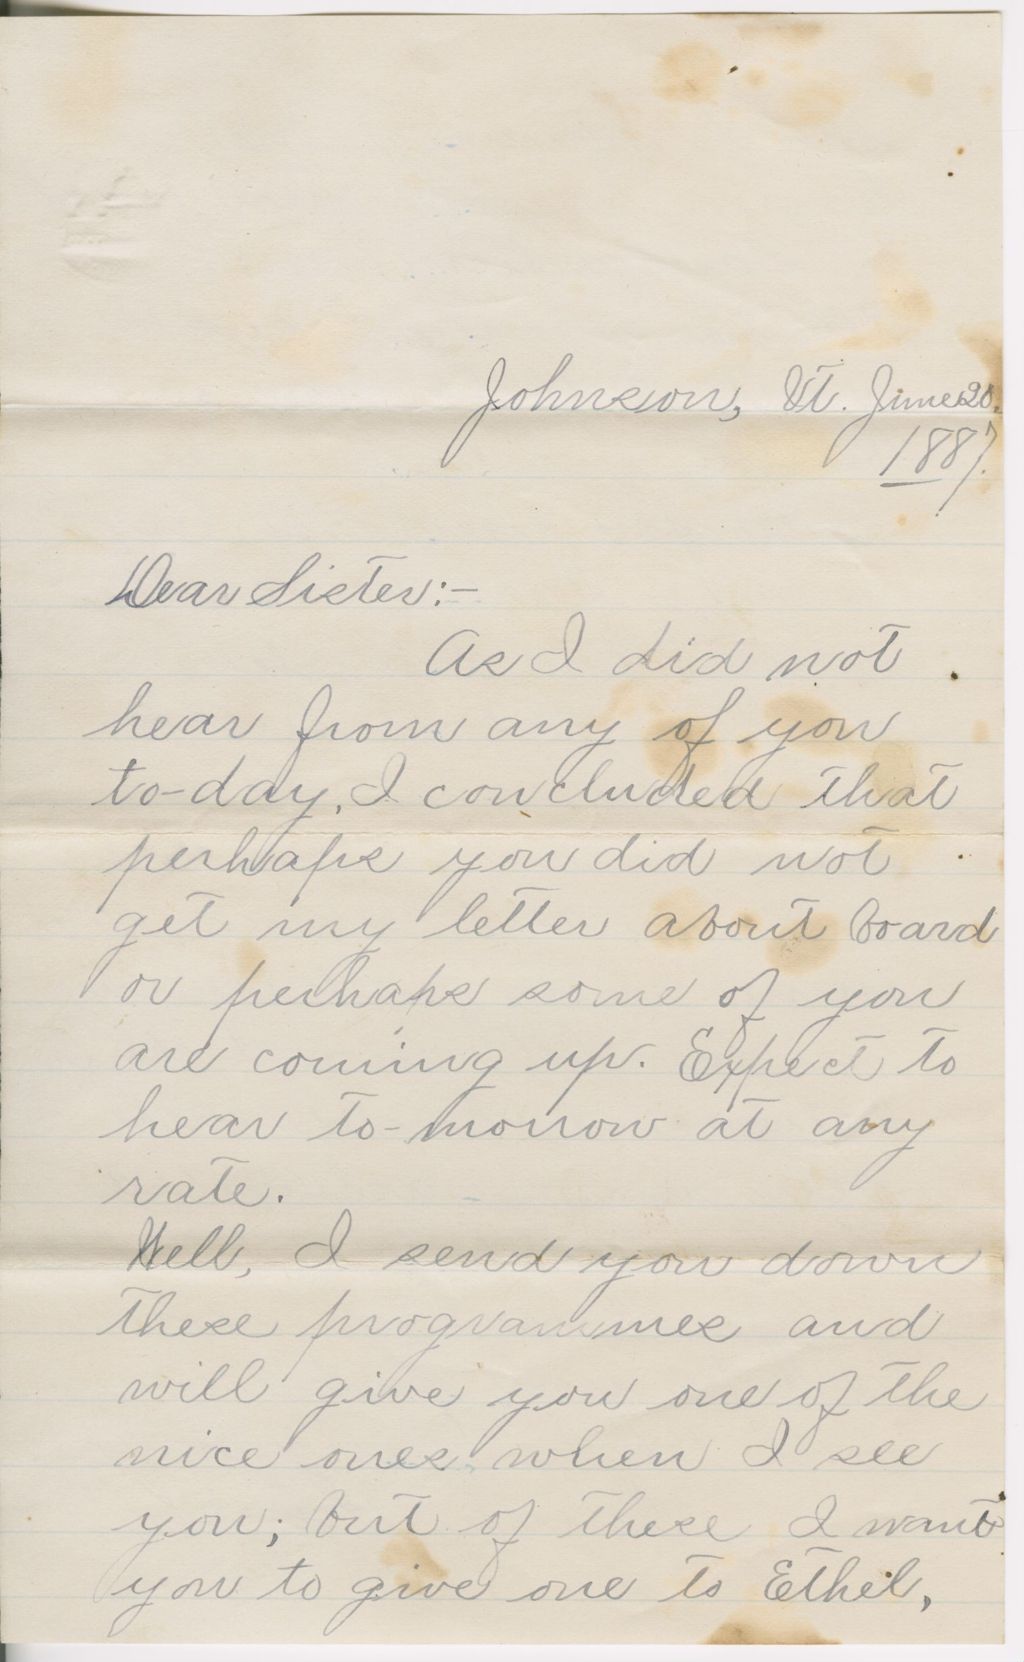 Johnson, Vt. June 20.
1887.
Dear Sister:-
As I did not
hear from any of you
to-day, I concluded that
perhaps you did not
get my letter about board
or perhaps some of you
are coming up. Expect to
hear to-morrow at any
rate.
Well, I send you down
these programmes and
will give you one of the
nice ones when I see
you; but of these I want
you to give one to Ethel,